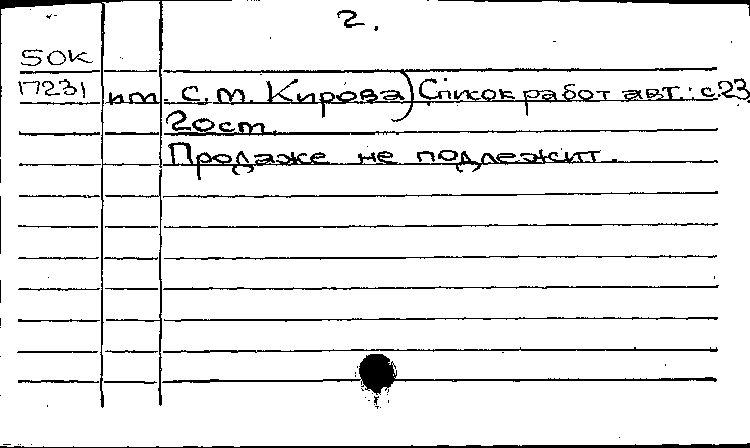 2.
50К
17231 им. С.М. Кирова) Список работ авт.: с 23
20 ст.
Продаже не подлежит.